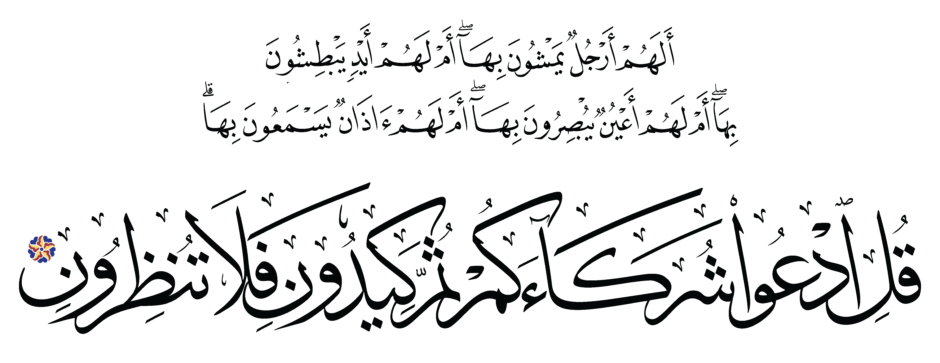 أَلَهُمْ أَرْجُلٌ يَمْشُونَ بِهَآ ۖ أَمْ لَهُمْ أَيْدٍ يَبْطِشُونَ
بِهَآ ۖ أَمْ لَهُمْ أَعْيُنٌ يُبْصِرُونَ بِهَآ ۖ أَمْ لَهُمْ ءَاذَانٌ يَسْمَعُونَ بِهَا ۗ
قُلِ ٱدْعُوا۟ شُرَكَآءَكُمْ ثُمَّ كِيدُونِ فَلَا تُنظِرُونِ